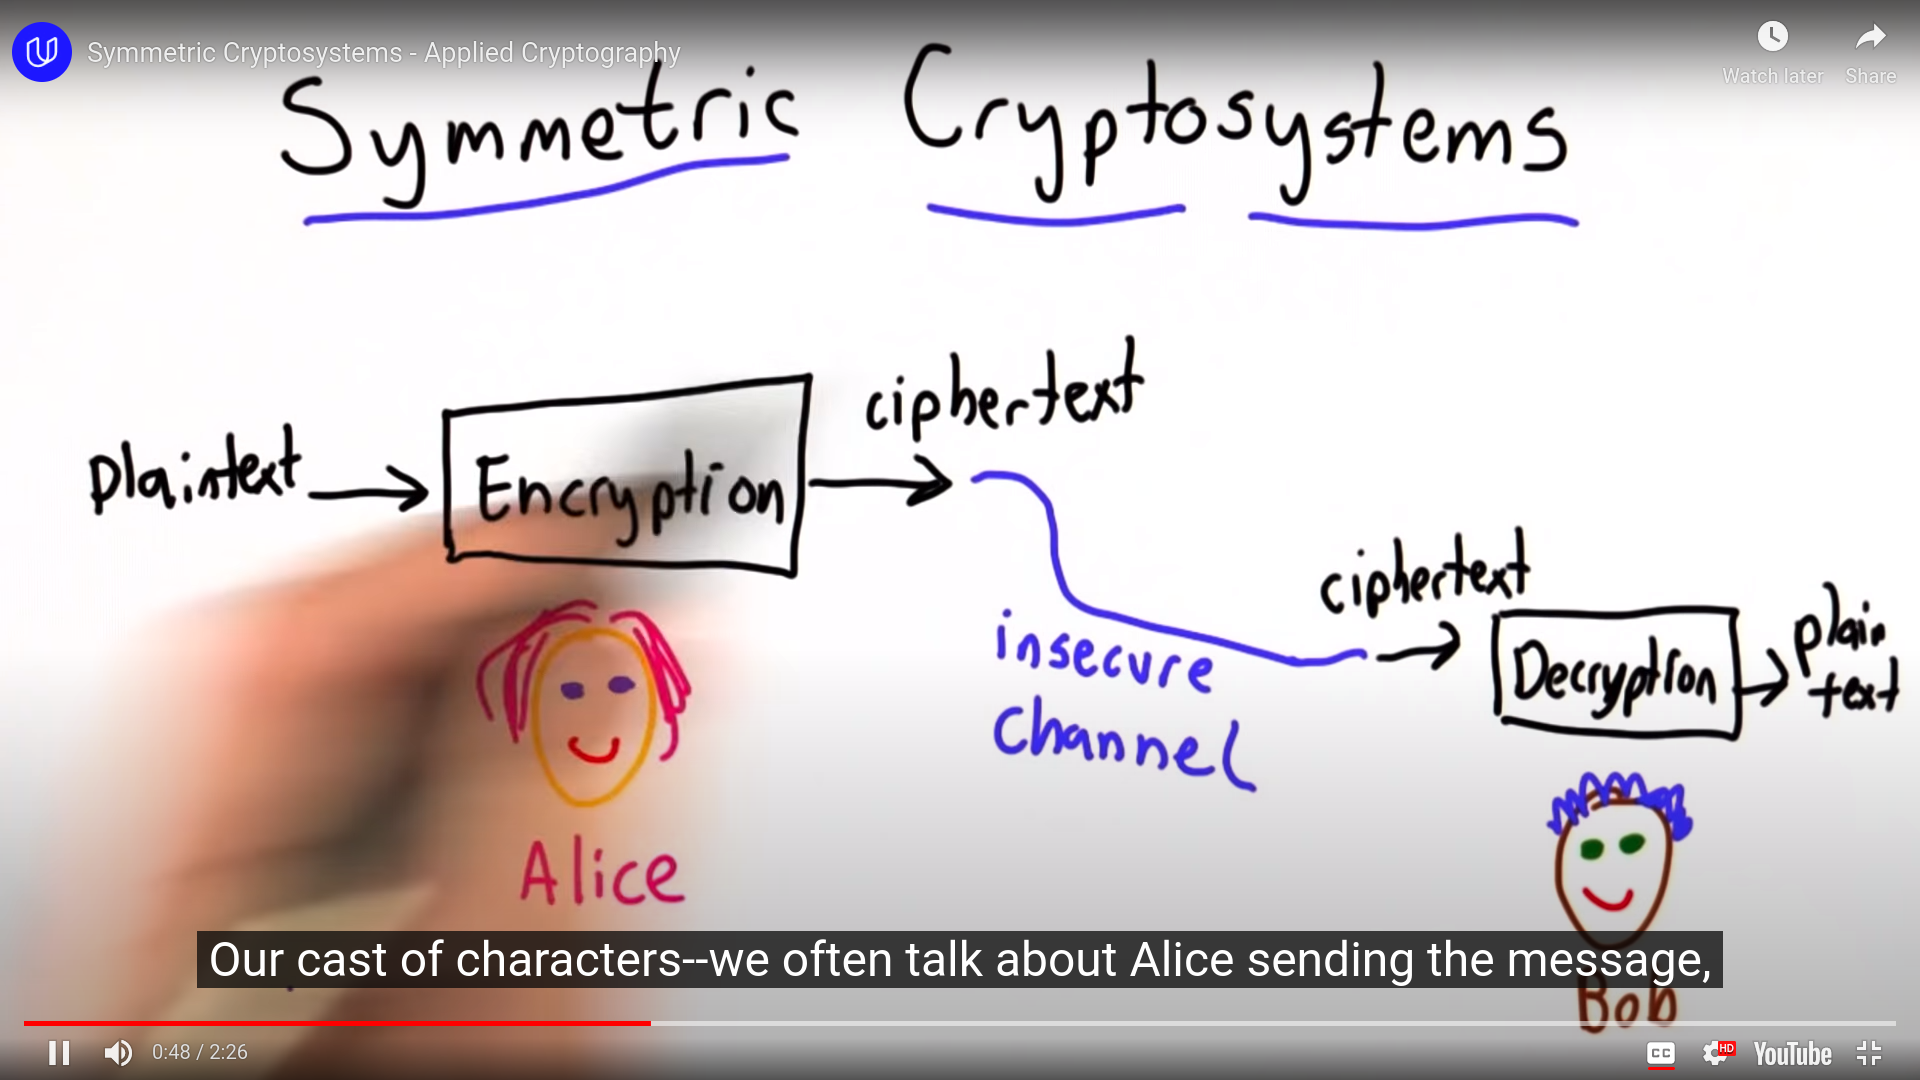 Symmetric Cryptosystems - Applied Cryptography
Watch later
Share
Symmetric Cryptosystems
plaintext
Encryption
ciphertext
insecure
channel
ciphertext
Decryption
plain
text
Alice
Our cast of characters--we often talk about Alice sending the message,
Bob
0:48 / 2:26
CC
HD
YouTube